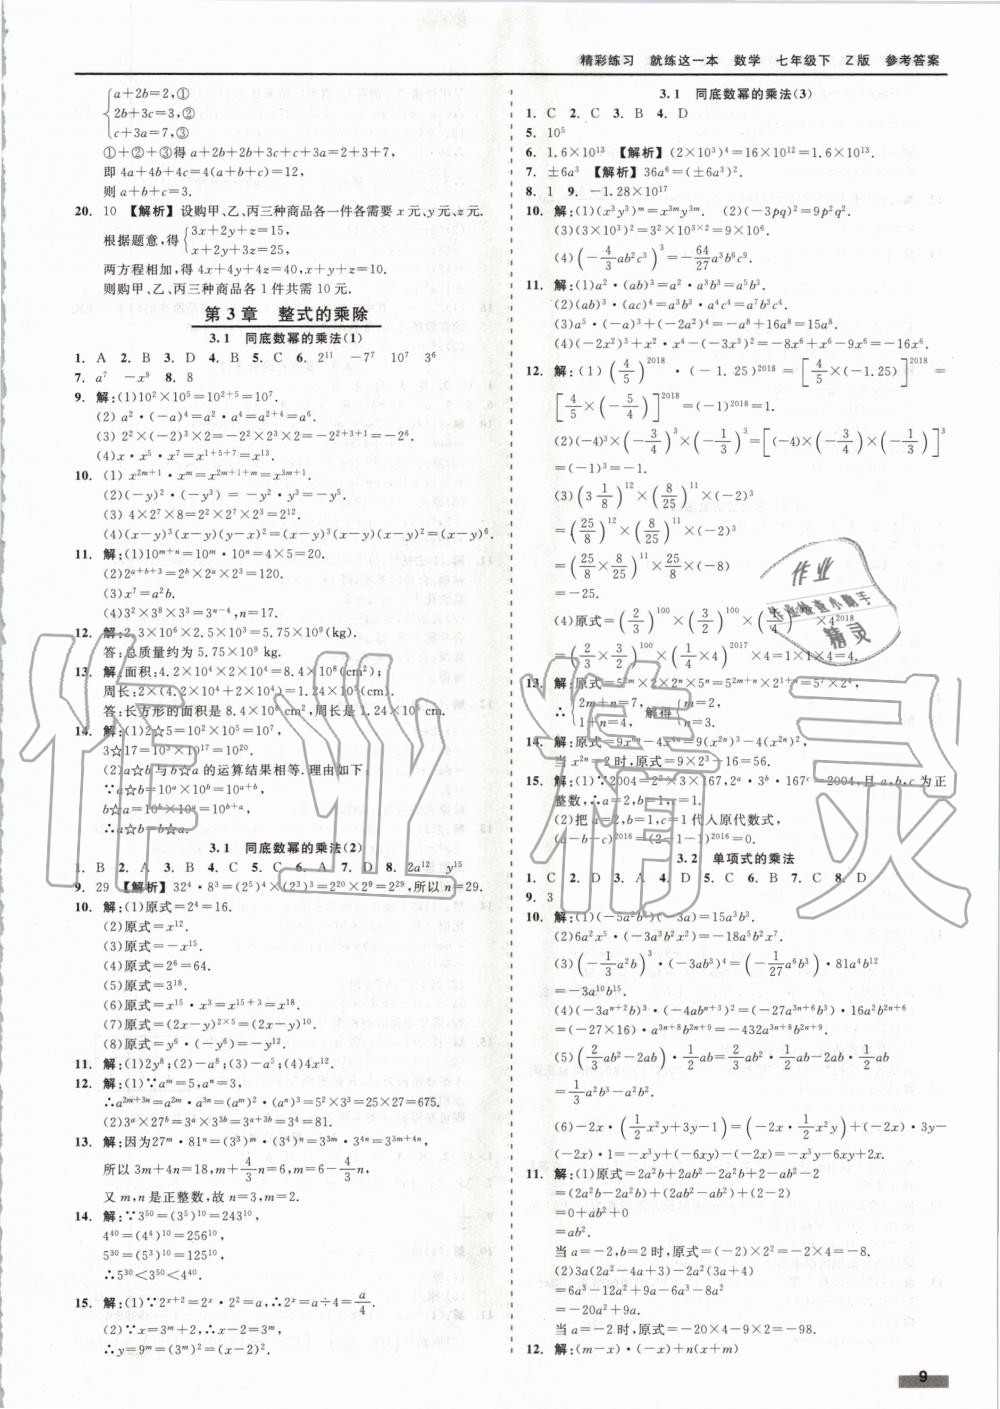 精彩练习 就练这一本 数学 七年级下 Z版 参考答案
{a+2b=2,①
2b+3c=3,②
c+3a=7,③
①+②+③得 a+2b+2b+3c+c+3a=2+3+7,
即 4a+4b+4c=4(a+b+c)=12,
则 a+b+c=3.
20. 10 【解析】设购甲、乙、丙三种商品各一件各需要 x元、y元、z元.
根据题意,得{3x+2y+z=15,
x+2y+3z=25,
两方程相加,得 4x+4y+4z=40,即 x+y+z=10.
则购甲、乙、丙三种商品各 1 件共需 10 元.
第 3 章 整式的乘除
3.1 同底数幂的乘法(1)
1. A 2. B 3. D 4. B 5. C 6. 2¹¹ −7⁷ 10⁷ 3⁶
7. a⁷ −x⁹ 8. 8
9. 解:(1)10²×10⁵=10²⁺⁵=10⁷.
(2) a²·(−a)⁴=a²·a⁴=a²⁺⁴=a⁶.
(3) 2²×(−2)³×2=−2²×2³×2=−2²⁺³⁺¹=−2⁶.
(4)x·x⁵·x⁷=x¹⁺⁵⁺⁷=x¹³.
10. (1) x^(2m+1)·x^m=x^(2m+1+m)=x^(3m+1).
(2)(−y)²·(−y³)=−y²·y³=−y⁵.
(3) 4×2⁷×8=2²×2⁷×2³=2¹².
(4)(x−y)³(x−y)(y−x)²=(x−y)³(x−y)(x−y)²=(x−y)⁶.
11. 解:(1)10^(m+n)=10^m·10^n=4×5=20.
(2)2^(a+b+3)=2^a×2^b×2³=120.
(3)x⁷=a²b.
(4)3²×3⁸×3³=3^(n−4),n=17.
12. 解:2.3×10⁶×2.5×10³=5.75×10⁹(kg).
答:总质量约为 5.75×10⁹ kg.
13. 解:面积:4.2×10⁴×2×10⁴=8.4×10⁸(cm²);
周长:2×(4.2×10⁴+2×10⁴)=1.24×10⁵(cm).
答:长方形的面积是 8.4×10⁸ cm²,周长是 1.24×10⁵ cm.
14. 解:(1)2☆5=10²×10⁵=10⁷,
3☆17=10³×10¹⁷=10²⁰.
(2)a☆b与b☆a的运算结果相等.理由如下:
∵a☆b=10^a×10^b=10^(a+b),
b☆a=10^b×10^a=10^(b+a),
∴a☆b=b☆a.
3.1 同底数幂的乘法(2)
1. B 2. A 3. B 4. C 5. C 6. A 7. D 8. 2a¹² y¹⁵
9. 29 【解析】32⁴·8³=(2⁵)⁴×(2³)³=2²⁰×2⁹=2²⁹,所以 n=29.
10. 解:(1)原式=2⁴=16.
(2)原式=x¹².
(3)原式=−x¹⁵.
(4)原式=2⁶=64.
(5)原式=3¹⁸.
(6)原式=x¹⁵·x³=x¹⁵⁺³=x¹⁸.
(7)原式=(2x−y)^(2×5)=(2x−y)¹⁰.
(8)原式=y⁶·(−y⁶)=−y¹².
11. 解:(1)2y⁸;(2)−a⁸;(3)−a⁵;(4)4x¹².
12. 解:(1)∵a^m=5,a^n=3,
∴a^(2m+3n)=a^(2m)·a^(3n)=(a^m)²·(a^n)³=5²×3³=25×27=675.
(2)3^a×27^b=3^a×3^(3b)=3^(a+3b)=3⁴=81.
13. 解:因为27^m·81^n=(3³)^m·(3⁴)^n=3^(3m)·3^(4n)=3^(3m+4n),
所以 3m+4n=18,m+4/3n=6,m=6−4/3n,
又 m,n 是正整数,故 n=3,m=2.
14. 解:∵3⁵⁰=(3⁵)¹⁰=243¹⁰,
4⁴⁰=(4⁴)¹⁰=256¹⁰,
5³⁰=(5³)¹⁰=125¹⁰,
∴5³⁰<3⁵⁰<4⁴⁰.
15. 解:(1)∵2^(x+2)=2^x·2²=a,∴2^x=a÷4=a/4.
(2)∵x=3^m+2,∴x−2=3^m,
∴y=9^m=(3^m)²=(x−2)².
3.1 同底数幂的乘法(3)
1. C 2. C 3. B 4. D
5. 10⁵
6. 1.6×10¹³ 【解析】(2×10³)⁴=16×10¹²=1.6×10¹³.
7. ±6a³ 【解析】36a⁶=(±6a³)².
8. 1 9. −1.28×10¹⁷
10. 解:(1)(x³y³)^m=x^(3m)y^(3m). (2)(−3pq)²=9p²q².
(3)(3×10³)²=3²×10^(3×2)=9×10⁶.
(4)(−4/3ab²c³)³=−64/27a³b⁶c⁹.
11. 解:(1)a²·(ab)³=a²·a³b³=a⁵b³.
(2)(ab)³·(ac)⁴=a³b³·a⁴c⁴=a⁷b³c⁴.
(3)a⁵·(−a)³+(−2a²)⁴=−a⁸+16a⁸=15a⁸.
(4)(−2x²)³+x²·x⁴−(−3x³)²=−8x⁶+x⁶−9x⁶=−16x⁶.
12. 解:(1)(4/5)²⁰¹⁸·(−1.25)²⁰¹⁸=[4/5×(−1.25)]²⁰¹⁸=
[4/5×(−5/4)]²⁰¹⁸=(−1)²⁰¹⁸=1.
(2)(−4)³×(−3/4)³×(−1/3)³=[(−4)×(−3/4)×(−1/3)]³
=(−1)³=−1.
(3)(3 1/8)¹²×(8/25)¹¹×(−2)³
=(25/8)¹²×(8/25)¹¹×(−2)³
=(25/8×8/25)¹¹×25/8×(−8)
=−25.
13. 解:原式=5^(2m)×2×2^n×5^n=5^(2m+n)×2^(1+n)=5⁷×2⁴,
∴{2m+n=7,
1+n=4,
解得{m=2,
n=3.
14. 解:原式=9x^(6n)−4x^(4n)=9(x^(2n))³−4(x^(2n))².
当 x^(2n)=2时,原式=9×2³−16=56.
15. 解:(1)∵2004=2²×3×167,2^a·3^b·167^c=2004,且 a,b,c 为正
整数,∴a=2,b=1,c=1.
(2)把 a=2,b=1,c=1代入原代数式,
(a−b−c)²⁰¹⁶=(2−1−1)²⁰¹⁶=0.
3.2 单项式的乘法
1. C 2. D 3. A 4. D 5. C 6. B 7. C 8. D
9. 3
10. 解:(1)(−5a²b²)(−3a)=15a³b².
(2)6a²x⁵·(−3a³b²x²)=−18a⁵b²x⁷.
(3)(−1/3a²b)³·(−3ab³)⁴=(−1/27a⁶b³)·81a⁴b¹²
=−3a¹⁰b¹⁵.
(4)(−3a^(n+2)b)³·(−4ab^(n+3))²=(−27a^(3n+6)b³)·16a²b^(2n+6)
=(−27×16)·a^(3n+8)b^(2n+9)=−432a^(3n+8)b^(2n+9).
(5)(2/3ab²−2ab)·1/2ab=2/3ab²·1/2ab−2ab·1/2ab
=1/3a²b³−a²b².
(6)−2x·(1/2x²y+3y−1)=(−2x·1/2x²y)+(−2x)·3y−
(−2x)·1=−x³y+(−6xy)−(−2x)=−x³y−6xy+2x.
11. 解:(1)原式=2a²b+2ab²−2a²b+2−ab²−2
=(2a²b−2a²b)+(2ab²−ab²)+(2−2)
=0+ab²+0
=ab².
当 a=−2,b=2时,原式=(−2)×2²=−2×4=−8.
(2)3a(2a²−4a+3)−2a²(3a+4)
=6a³−12a²+9a−6a³−8a²
=−20a²+9a.
当 a=−2时,原式=−20×4−9×2=−98.
12. 解:(m−x)·(−x)−(x+m)·(−n)
9
作业精灵
作业
作业检查小助手
精灵